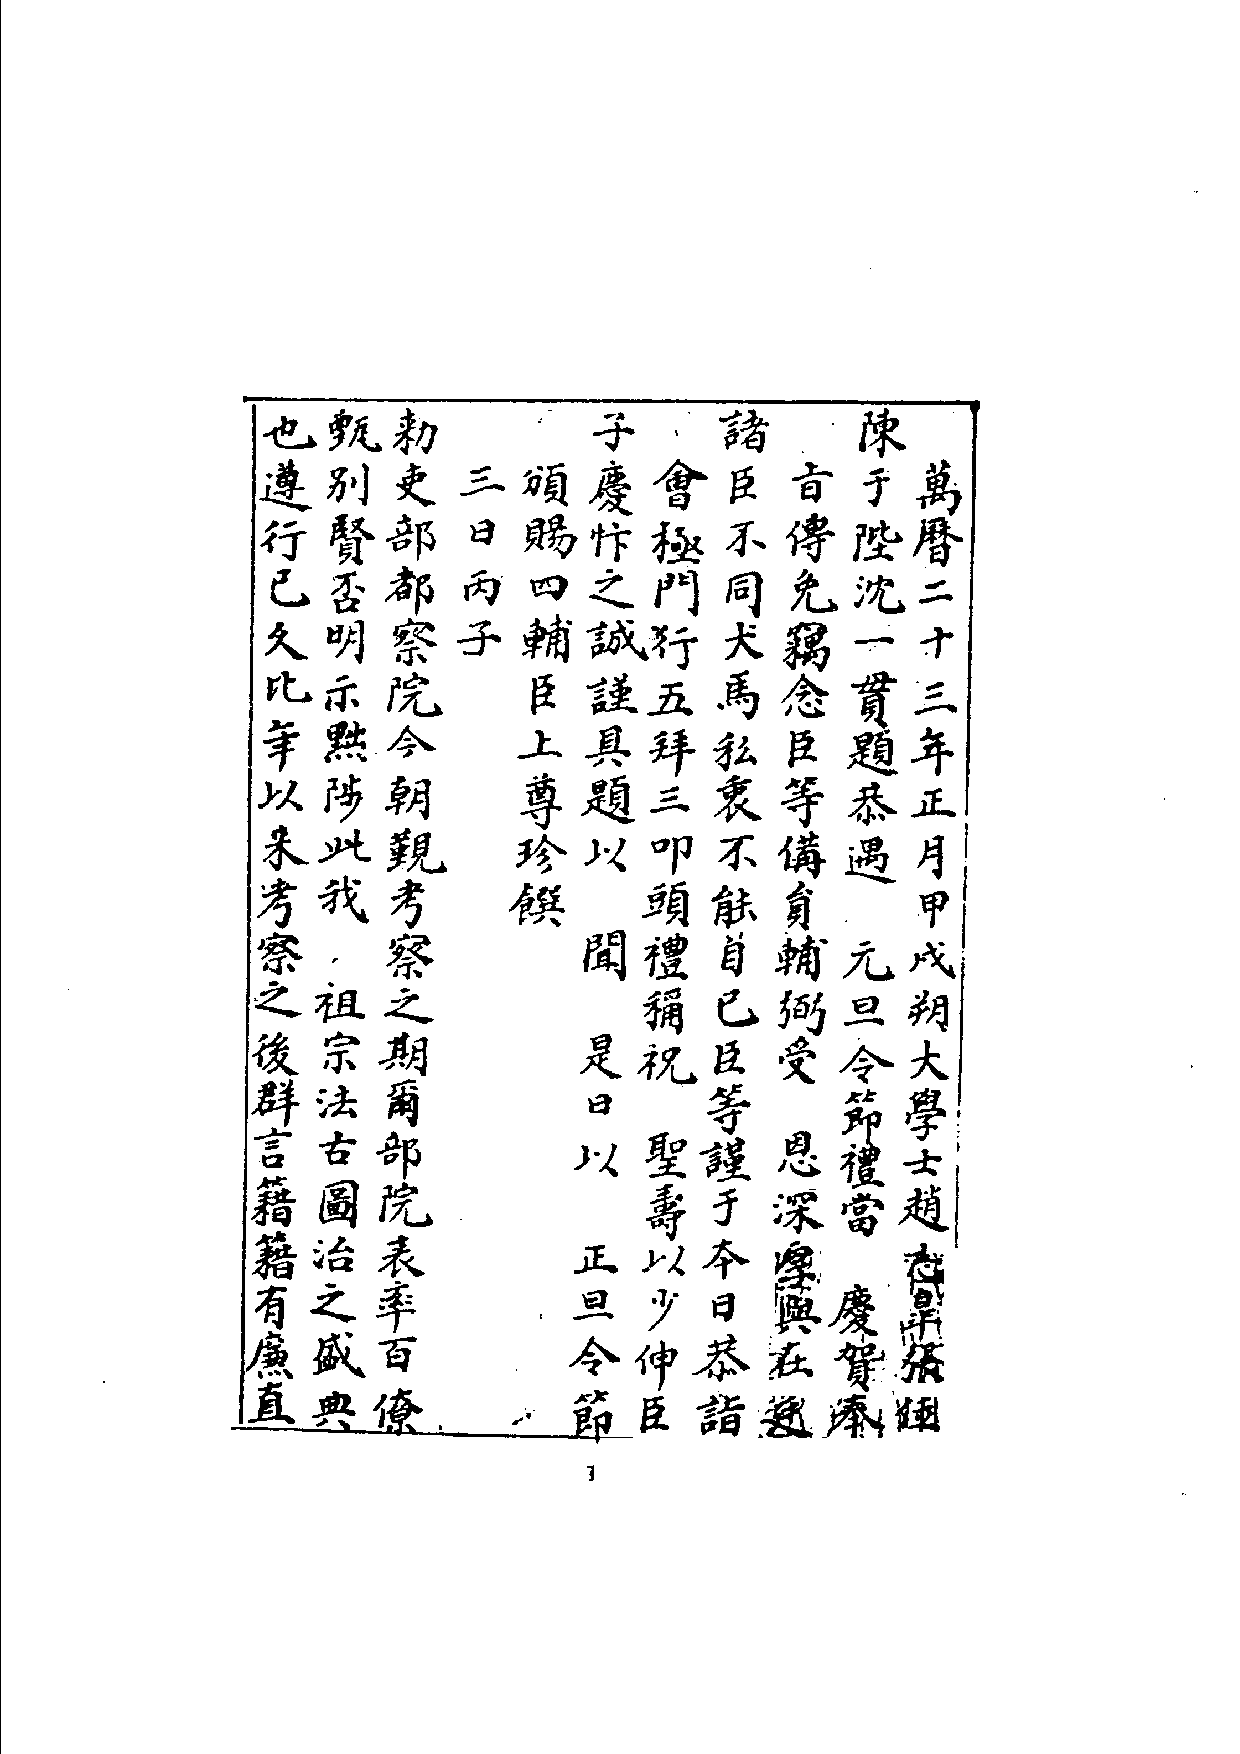 萬曆二十三年正月甲戌朔大學士趙志皋張位
陳于陛沈一貫題恭遇　元旦令節禮當　慶賀奉
旨傳免竊念臣等備員輔弼受　恩深 與在
諸臣不同犬馬私衷不能自已臣等謹于本日恭詣
會極門行五拜三叩頭禮稱祝　聖壽以少伸臣
子慶忭之誠謹具題以　聞　是日以　正旦令節
頒賜四輔臣上尊珍饌
三日丙子
勑吏部都察院今朝覲考察之期爾部院表率百僚
甄別賢否明示黜陟此我　祖宗法古圖治之盛典
也遵行已久比年以来考察之後群言藉藉有廉直